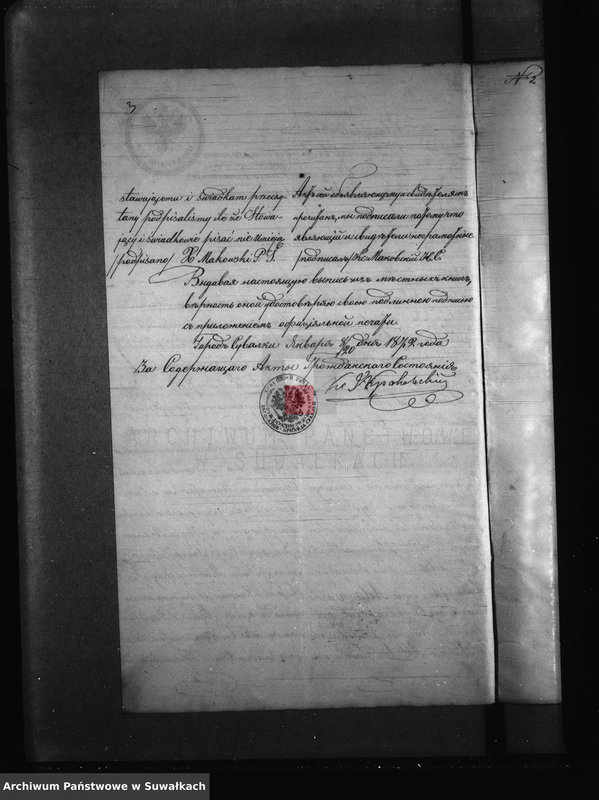 3
№ 2
stawającemu i świadkom przeczy-
tany podpisaliśmy ile że Stawa-
jący i świadkowie pisać nie umieją
/podpisano/ X Makowski P. S.
Актъ сей объявляющему и свидѣтелямъ
прочитанъ, мы подписали потому что
являющій и свидѣтели неграмотные
/подписалъ/ Кс. Маковскій
Выдавая настоящую выпись изъ мѣстныхъ книгъ,
вѣрность оной удостовѣряю своею подлинною подписью
съ приложеніемъ оффиціальной печати.
Городъ Сувалки Января 8/20 дня 1872 года
За Содержащаго Акты Гражданскаго Состоянія
Кс.
ARCHIWUM PAŃSTWOWE
W SUWAŁKACH
Archiwum Państwowe w Suwałkach